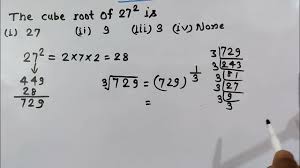 The cube root of 27² is
(i) 27 (ii) 9 (iii) 3 (iv) None
27² = 2×7×2 = 28
449
28
729
3√729 = (729)^1/3
=
3 729
3 243
3 81
3 27
3 9
3